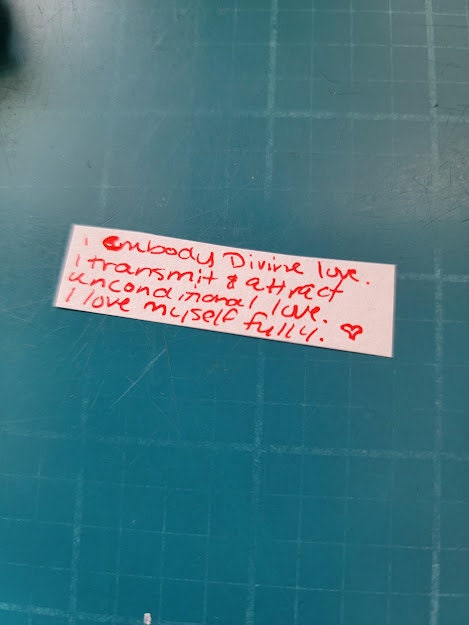 i embody Divine love.
i transmit & attract
unconditional love.
i love myself fully. ♡